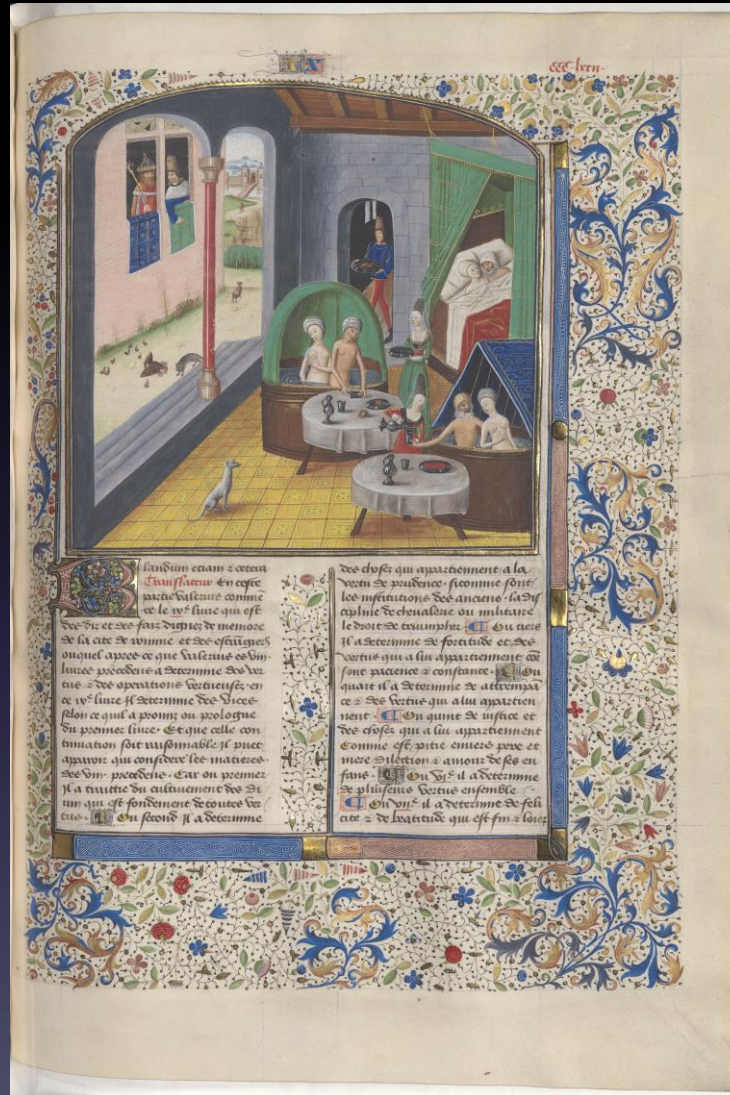 IX
CCClxxii.
landum etiam & cetera
Translateur En ceste
partie valerius commē
ce le ixe livre qui est
des diz et des faiz dignes de memoire
de la cite de romme et des estrangiers
ouquel apres ce que valerius es viii.
livres precedens a determine des ver
tus & des operations vertueuses en
ce ixe livre Il determine des vices
selon ce qu il a promis ou prologue
du premier livre. Et que ceste con
tinuation soit raisonnable Il puet
apparoir qui considere les matieres.
des viii. precedens. Car ou premier
Il a traittie du cultivement des di
eux qui est fondement de toutes ver
tus. Ou second Il a determine
des choses qui appartiennent a la
vertu de prudence. si comme sont
les institutions des anciens. la dis
cipline de chevalerie ou militaire
le droit de triumpher. Ou tiers
Il a determine de fortitude et des
vertus qui a lui appartiennent cōe
sont pacience & constance. Ou
quart il a determine de attrempā
ce & des vertus qui a lui appartien
nent. Ou quint de iustice et
des choses qui a lui appartiennent
Comme est pitie envers pere et
mere dilection & amour de ses en
fans. Ou vie. il a determine
de plusieurs vertus ensemble
Ou viie. il a determine de feli
cite & de beatitude qui est fin & loier